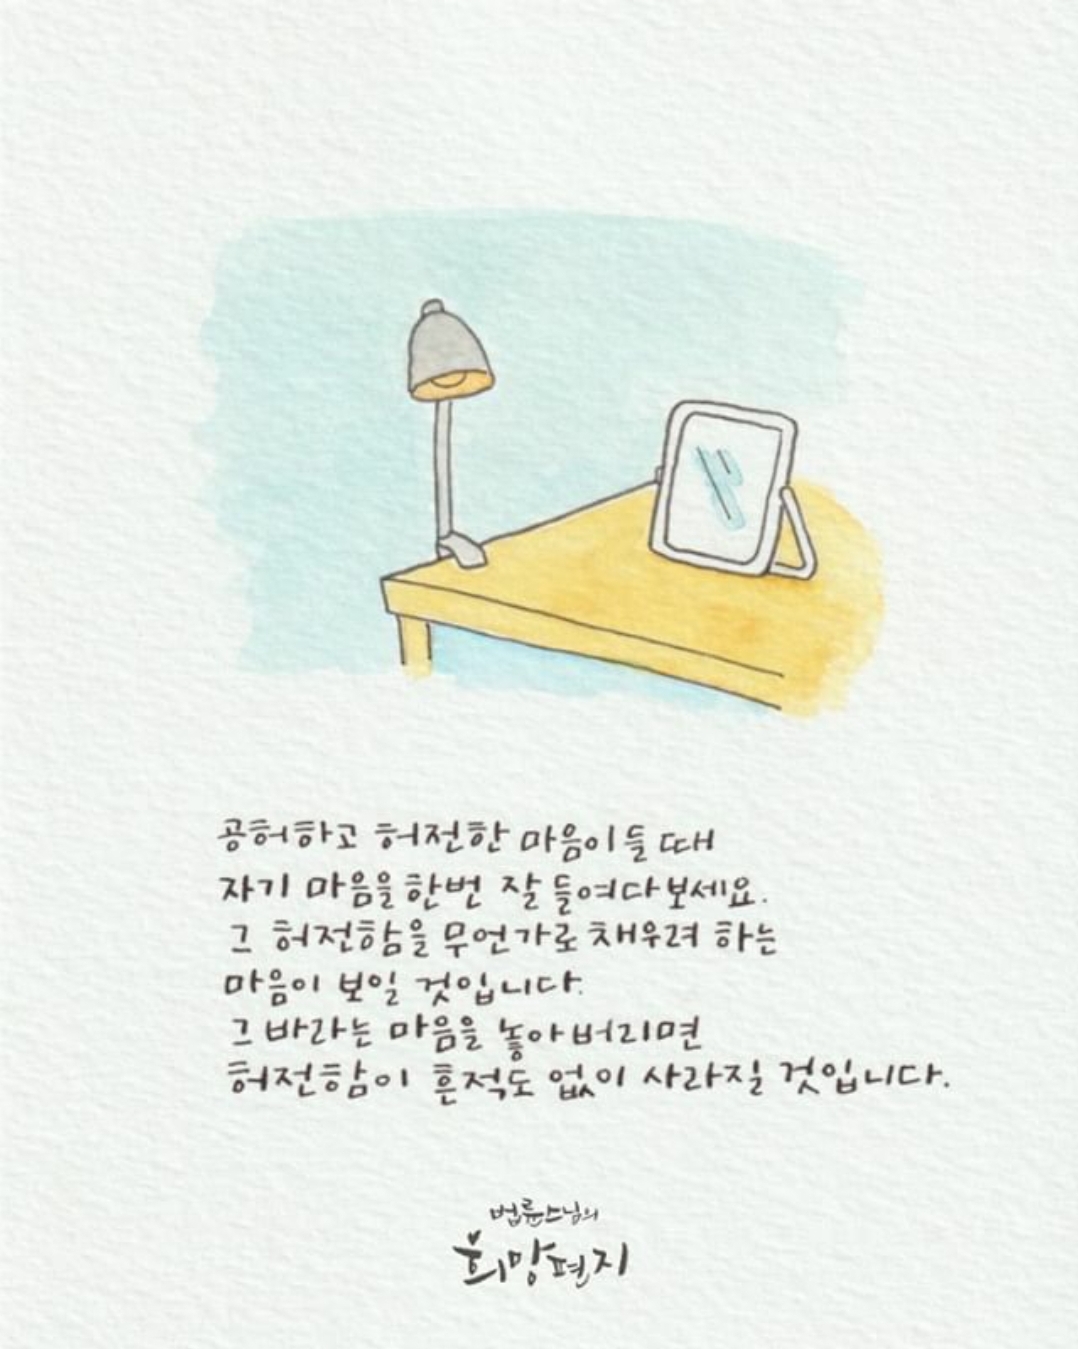 공허하고 허전한 마음이 들 때
자기 마음을 한번 잘 들여다보세요.
그 허전함을 무언가로 채우려 하는
마음이 보일 것입니다.
그 바라는 마음을 놓아버리면
허전함이 흔적도 없이 사라질 것입니다.
법륜스님의
희망편지